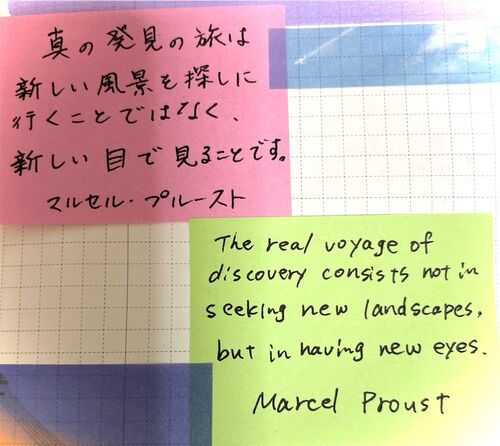 真の発見の旅は
新しい風景を探しに
行くことではなく、
新しい目で見ることです。
マルセル・プルースト
The real voyage of
discovery consists not in
seeking new landscapes,
but in having new eyes.
Marcel Proust